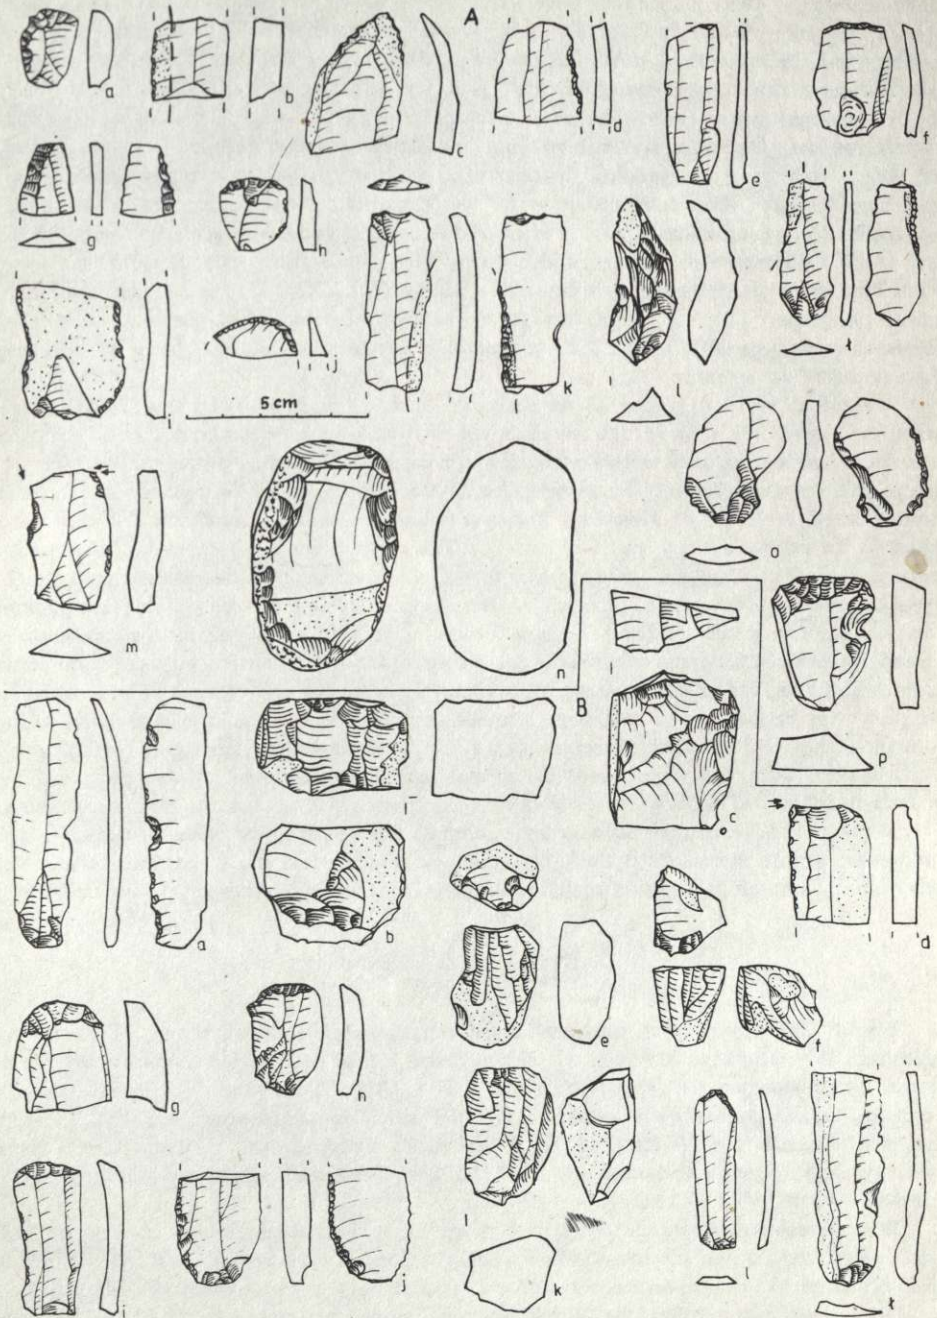 A
a
b
c
d
e
f
g
h
i
j
k
l
ł
5 cm
m
n
o
p
B
a
b
c
d
e
f
g
h
i
j
k
l
ł